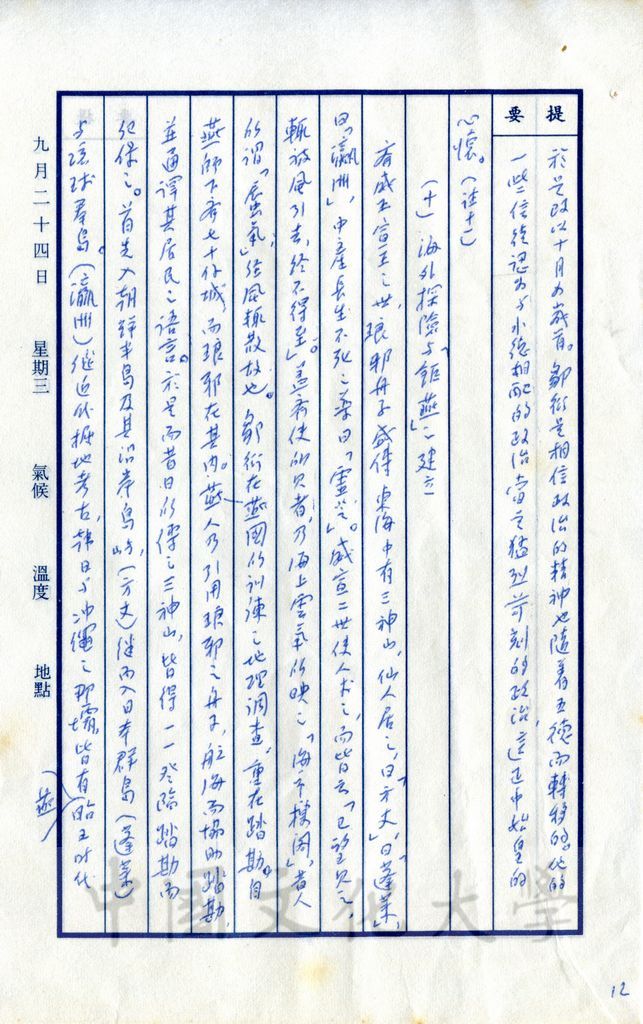 提要
於是改以十月為歲首。鄒衍是相信政治的精神也隨着五德而轉移的。他的
一些信徒認為与水德相配的政治當是猛烈苛刻的政治，這正中始皇的
心懷。(註十一)
(十)海外探險与「鉅燕」之建立
齊威王宣王之世，琅邪舟子盛傳東海中有三神山，仙人居之，曰「方丈」，曰「蓬萊」，
曰「瀛洲」，中產長生不死之藥曰「靈芝」。威宣二世使人求之，而皆云「已望見之，
輒被風引去，終不得至」。蓋齊使所見者，乃海上雲氣所映之「海市樓閣」，昔人
所謂「蜃氣」，經風輒散故也。鄒衍在燕國所訓練之地理調查，重在踏勘。自
燕師下齊七十餘城，而琅邪在其內。燕人乃引用琅邪之舟子，航海而協助踏勘，
並通譯其居民之語言。於是而昔日所傳之三神山，皆得一一登臨踏勘而
紀錄之。首先入朝鮮半島及其沿岸島嶼，(方丈)繼而入日本群島(蓬萊)
与琉球羣島。(瀛洲)從近代掘地考古，韓日与沖繩之那霸，皆有昭王時代
(燕)
九月二十四日 星期三 氣候 溫度 地點
中國文化大學
12